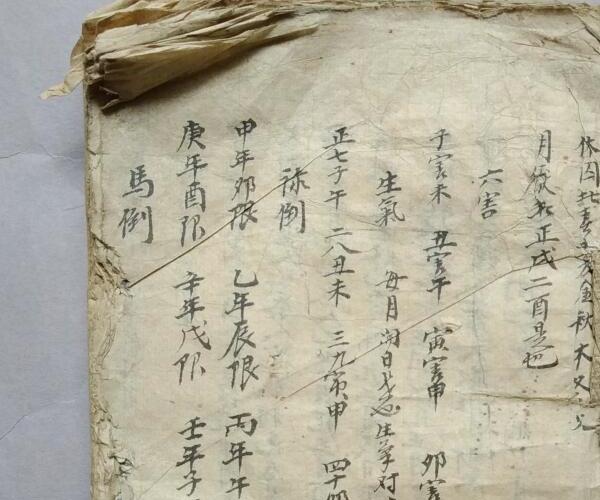 休囚 春 金秋木
月厭 正戌二酉是也
六害
子害未 丑害午 寅害申 卯害
生氣 每月開日 生 对
正七子午 二八丑未 三九寅申 四十卯
祿倒
甲年卯限 乙年辰限 丙年午
庚年酉限 辛年戌限 壬年子
馬倒